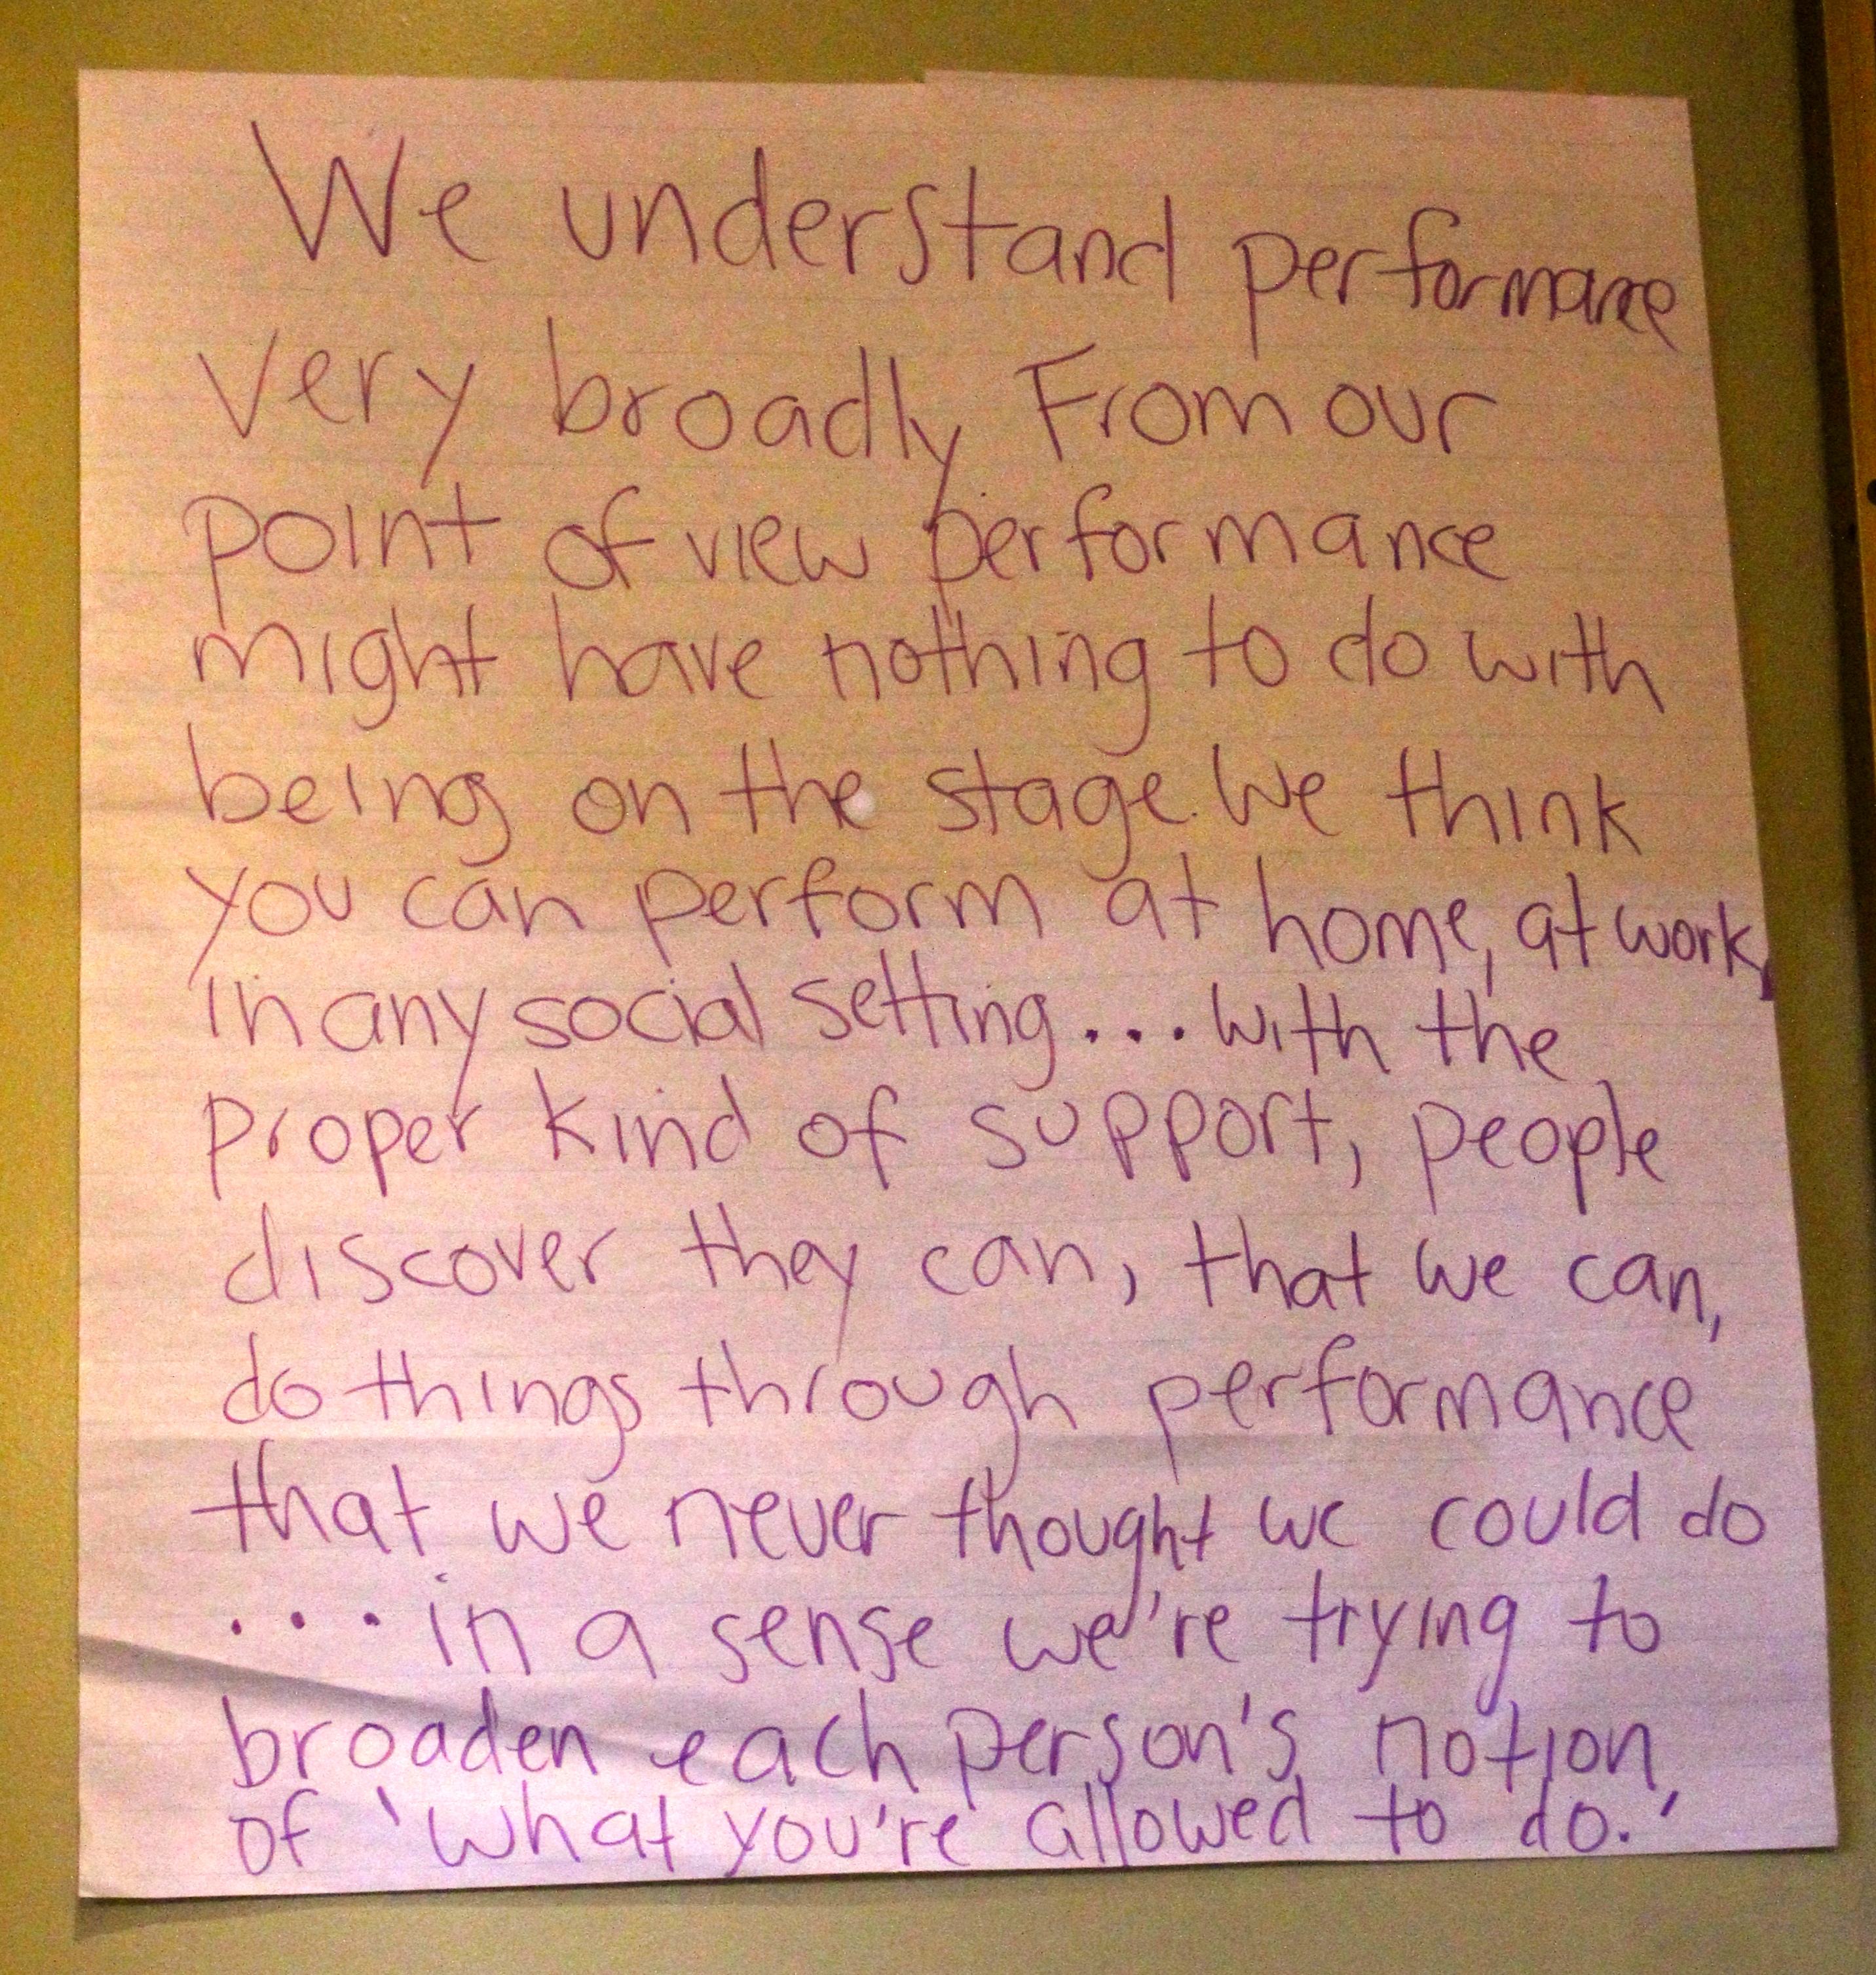 We understand performance
very broadly From our
point of view performance
might have nothing to do with
being on the stage. We think
you can perform at home, at work,
in any social setting... with the
proper kind of support, people
discover they can, that we can,
do things through performance
that we never thought we could do
... in a sense we're trying to
broaden each person's notion
of 'what you're allowed to do.'